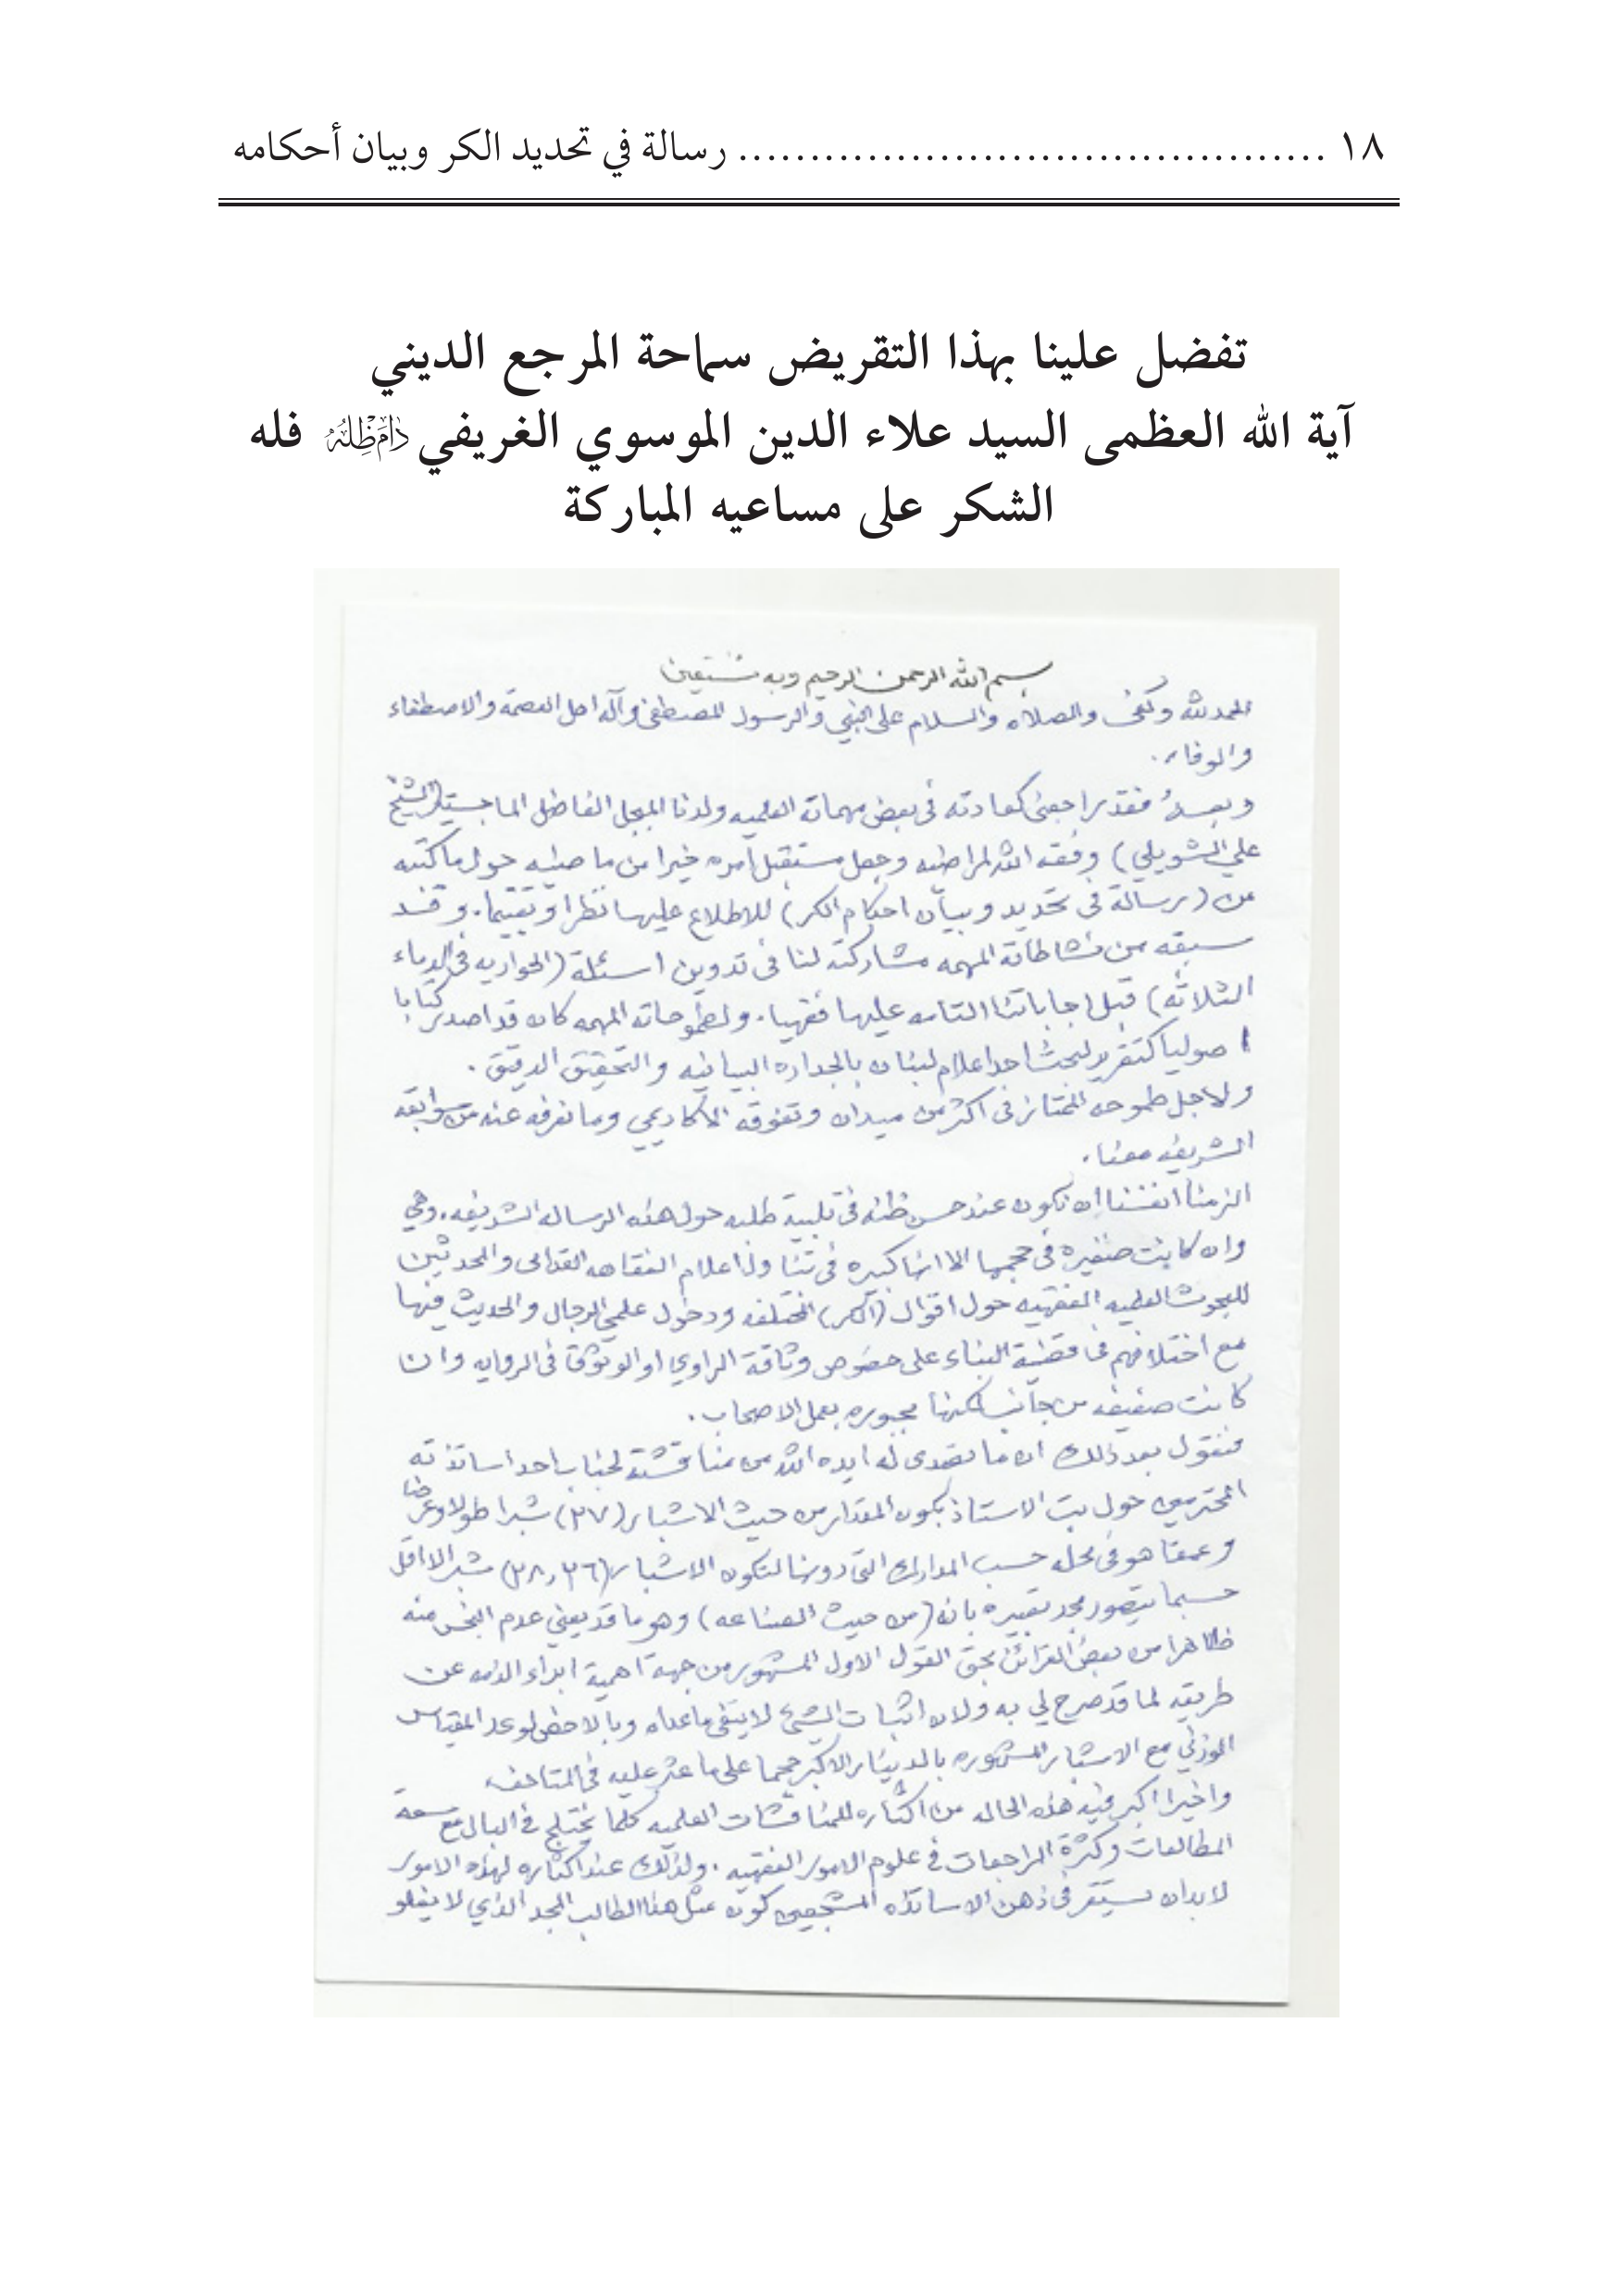 ١٨ ......................................... رسالة في تحديد الكر وبيان أحكامه
تفضل علينا بهذا التقريض سماحة المرجع الديني
آية الله العظمى السيد علاء الدين الموسوي الغريفي دَامَ ظِلُّهُ فله
الشكر على مساعيه المباركة
بسم الله الرحمن الرحيم وبه نستعين
الحمد لله وكفى والصلاة والسلام على النبي والرسول المصطفى وآله اهل العصمة والاصطفاء
والوفاء.
وبعدُ فقد راجعني كعادته في بعض مهماته العلميه ولدنا المبجل الفاضل الماجستير (الشيخ
علي الشويلي) وفقه الله لمراضيه وجعل مستقبل أمره خيرا من ماضيه حول ما كتبه
من (رسالة في تحديد وبيان احكام الكر) للاطلاع عليها نظرا وتقييما. وقد
سبقه من نشاطاته المهمه مشاركته لنا في تدوين اسئلة (الحواريه في الدماء
الثلاثه) قبل اجاباتنا التامه عليها فقهيا. ولطموحاته المهمه كان قد اصدر كتابا
اصوليا كتقرير لبحث احد اعلام لبنان بالجداره البيانيه والتحقيق الدقيق.
ولاجل طموحه الممتاز في اكثر من ميدان وتفوقه الاكاديمي وما نعرفه عنه من سوابقه
الشريفه معنا.
الزمنا أنفسنا ان نكون عند حسن ظنه في تلبية طلبه حول هذه الرساله الشريفه. وهي
وان كانت صغيره في حجمها الا انها كبيره في تناول اعلام الفقاهه القدامى والمحدثين
للبحوث العلميه الفقهيه حول اقوال (الكر) المختلفه ودخول علمي الرجال والحديث فيها
مع اختلافهم في قضية البناء على خصوص وثاقة الراوي او الوثوق في الروايه وان
كانت ضعيفه من جانب لكنها مجبوره بعمل الاصحاب.
فنقول بعد ذلك ان ما تصدى له ايده الله من مناقشته لجناب احد اساتذته
المحترمين حول بت الاستاذ بكون المقدار من حيث الاشبار (٢٧) شبرا طولا وعرضا
وعمقا هو في محله حسب المدارك التي دونها لتكون الاشبار (٢٨,٢٦) شبر الا اقل
حسبما يتصور مجد تعبيره بانه (من حيث الصناعه) وهو ما قد يعني عدم البخس منه
ظاهرا من بعض القرائن بحق القول الاول المشهور من جهة اهمية ابراء الذمه عن
طريقه لما قد صرح لي به ولان اثبات الشيء لا ينفي ماعداه وبالاخص لو عد المقياس
الوزني مع الاشبار المشهوره بالدينار الاكبر حجما على ما عثر عليه في المتاحف.
واخيرا اكبر فيه هذه الحاله من اكثاره للمناقشات العلميه كلما تختلج في البال مع سعة
المطالعات وكثرة المراجعات في علوم الامور الفقهيه. ولذلك عند اكثاره لهذه الامور
لابد ان يستقر في ذهن الاساتذه المشجعين كون مثل هذا الطالب المجد الذي لا يخلو